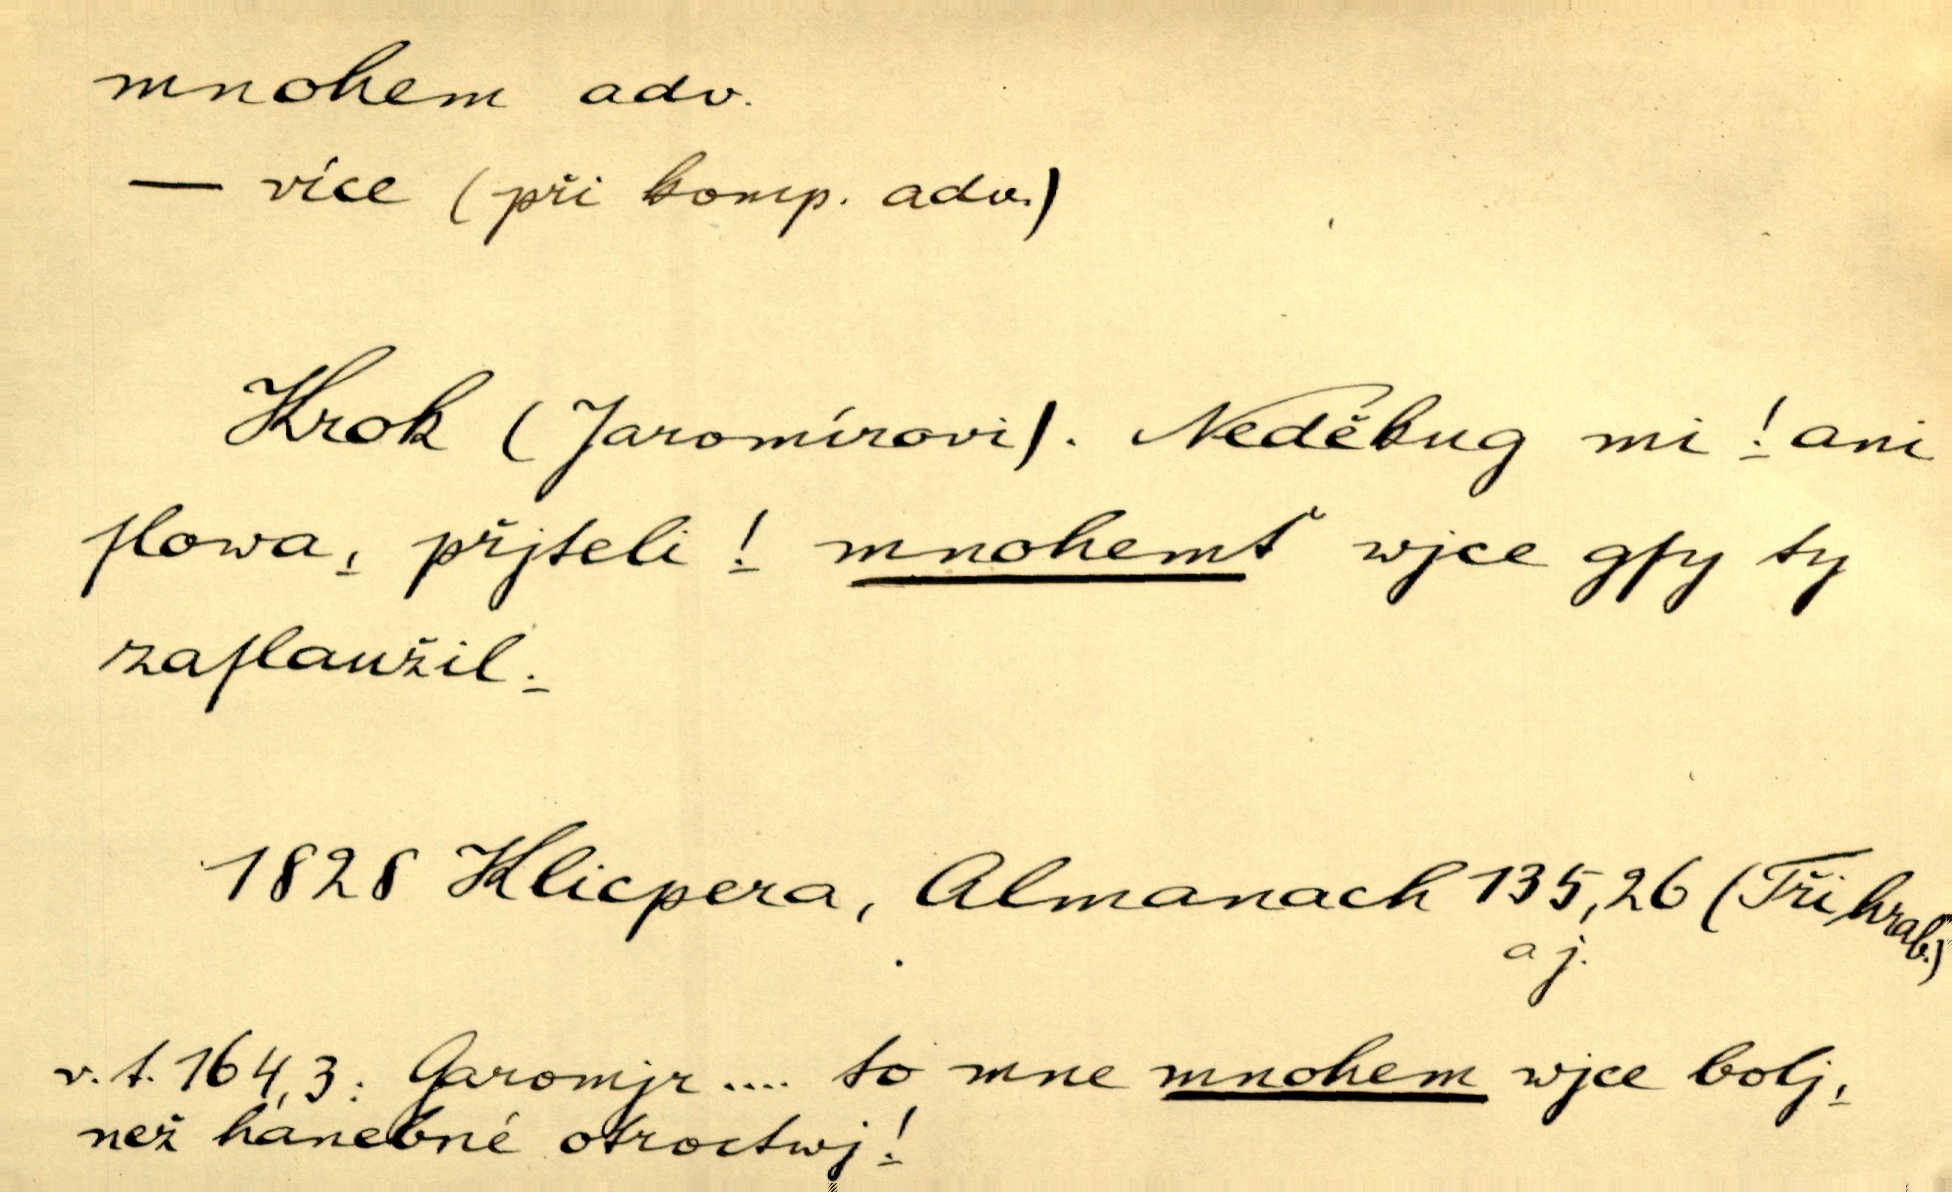 mnohem adv.
— více (při komp. adv.)
Krok (Jaromírovi). Neděkug mi! ani
ſlowa, přjteli! mnohemť wjce gſy ty
zaſlaužil.
1828 Klicpera, Almanach 135,26 (Tři hrab.)
a j.
v. t. 164,3: Garomjr .... to mne mnohem wjce bolj,
než hanebné otroctwj!